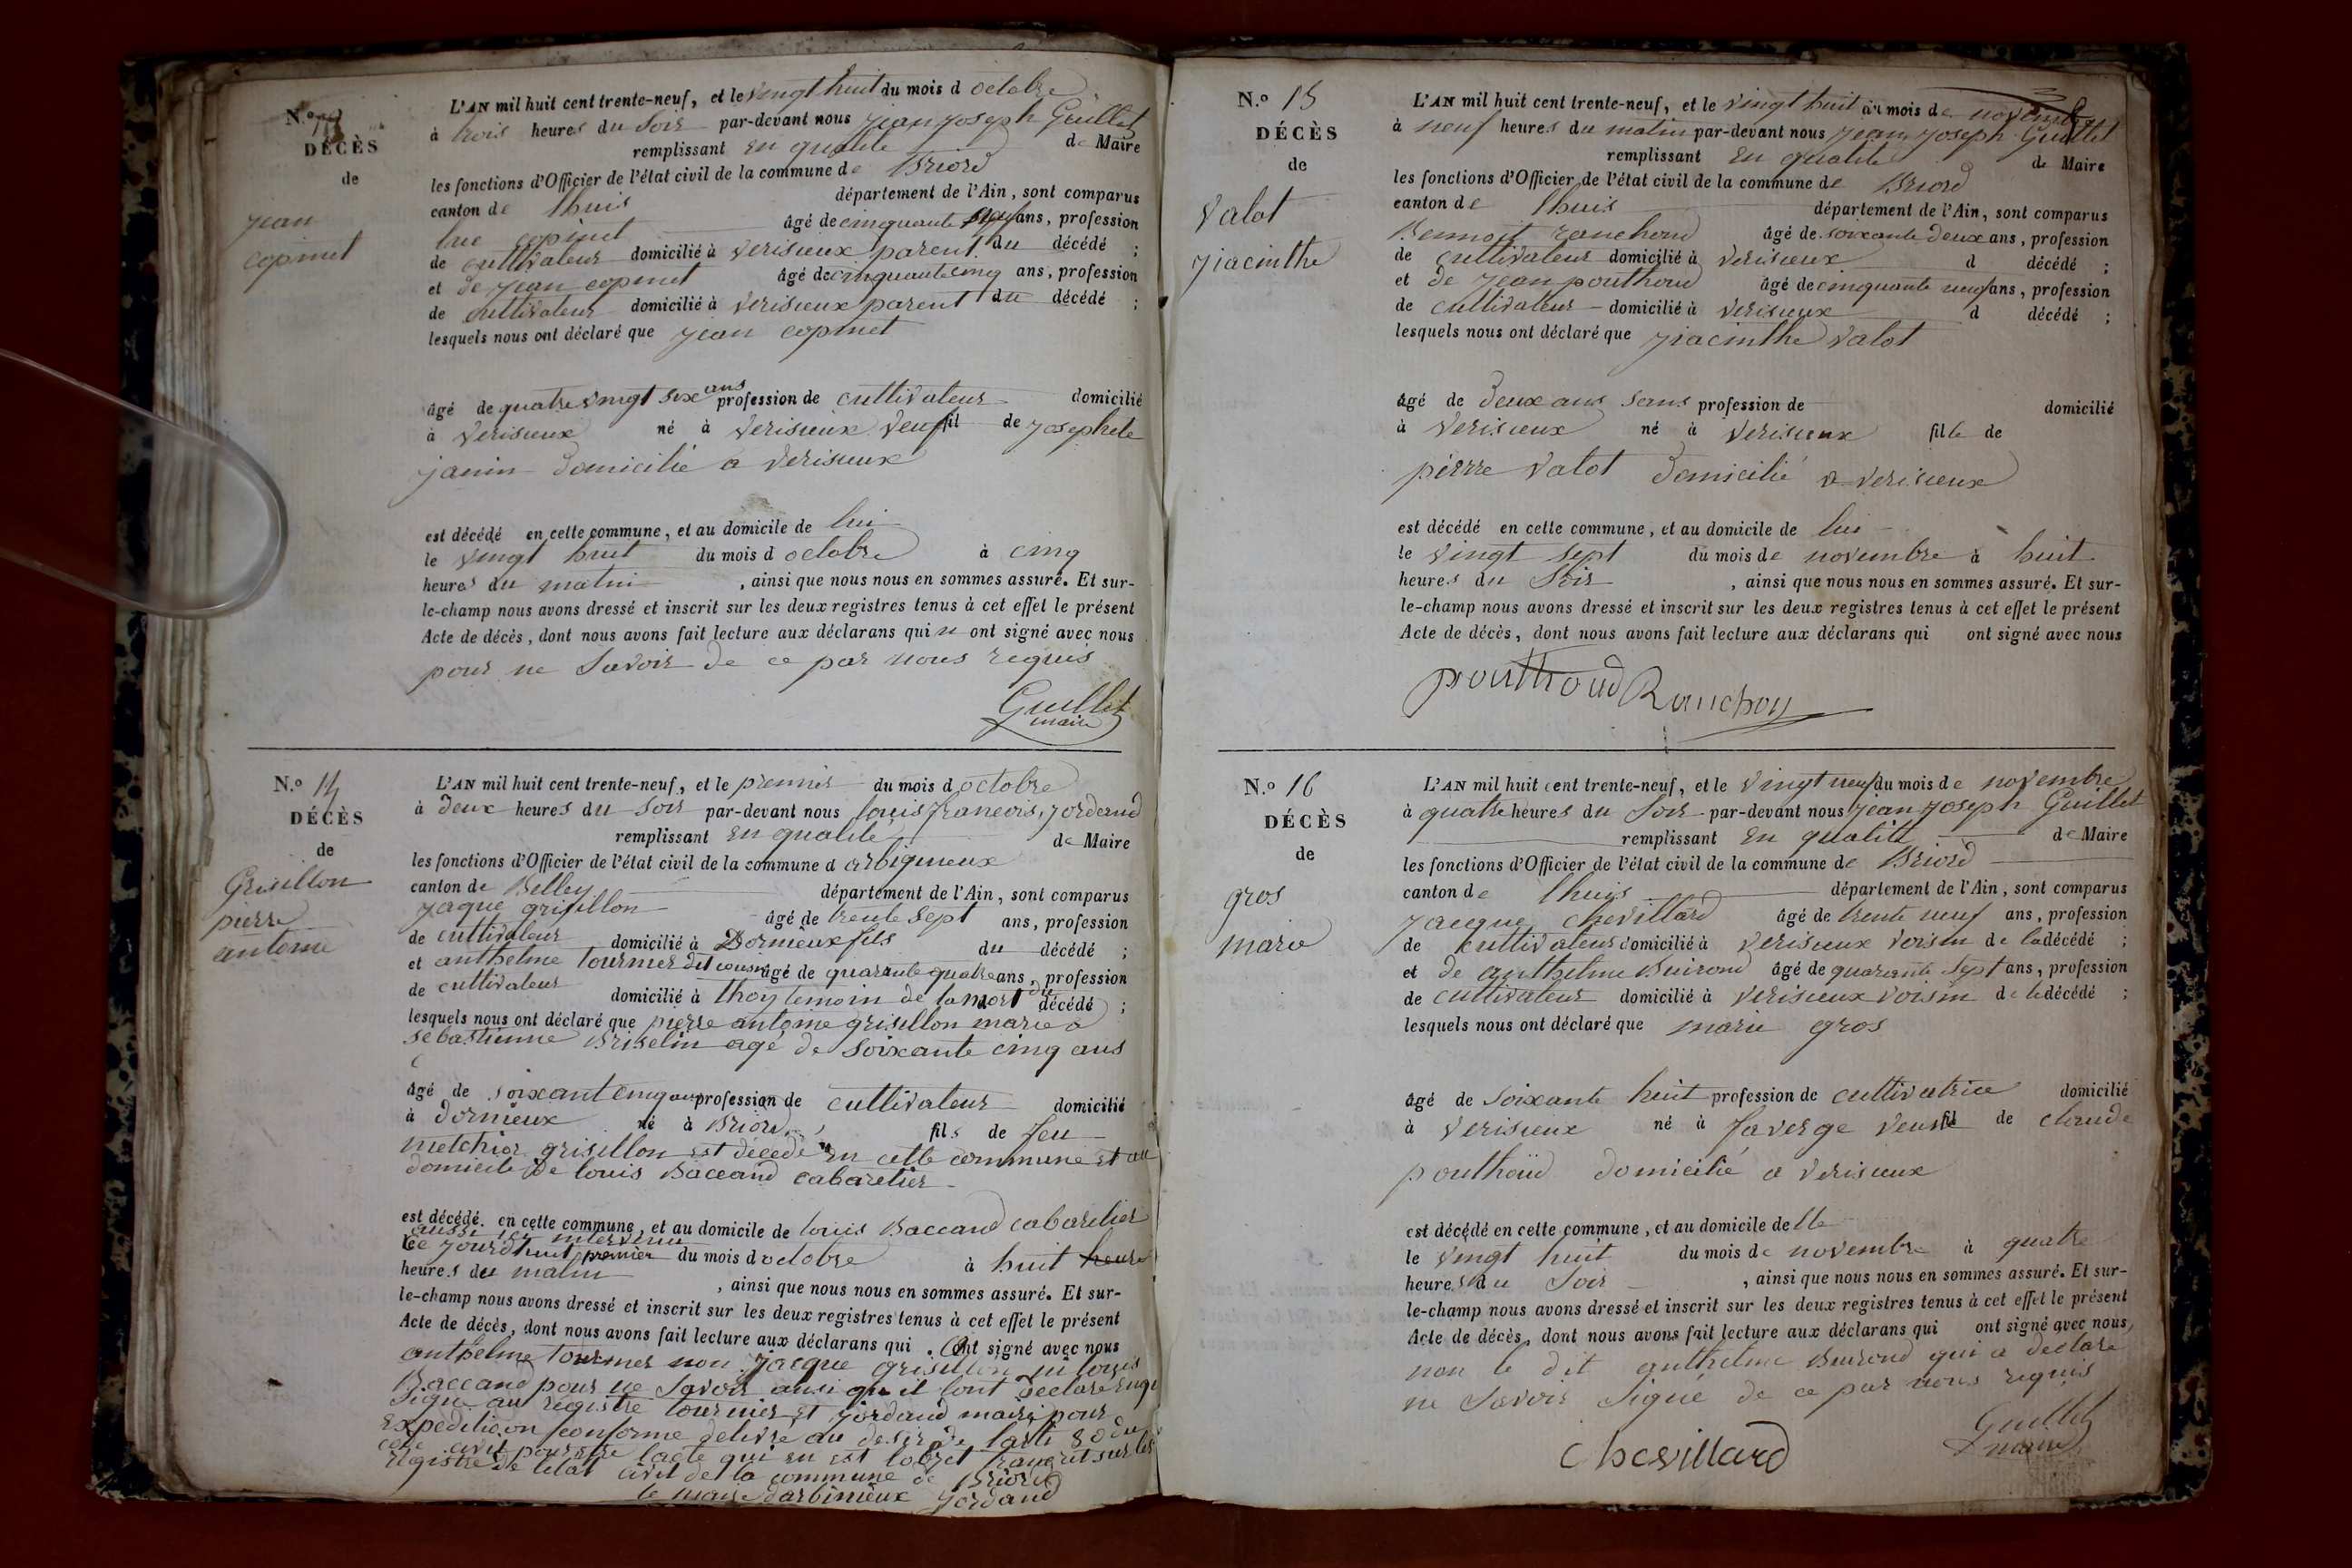 N.º 13
DÉCÈS
de
jean
copinet
L'AN mil huit cent trente-neuf, et le vingt huit du mois d octobre
à trois heures du soir par-devant nous jean joseph Guillet
remplissant en qualite de Maire
les fonctions d'Officier de l'état civil de la commune de Briord
canton de lhuis département de l'Ain, sont comparus
luc copinet âgé de cinquante neuf ans, profession
de cultivateur domicilié à verisieux parent du décédé ;
et de jean copinet âgé de cinquante cinq ans, profession
de cultivateur domicilié à verisieux parent du décédé ;
lesquels nous ont déclaré que jean copinet
âgé de quatre vingt six ans profession de cultivateur domicilié
à verisieux né à verisieux veuf fil de josephete
janin domicilié a verisieux
est décédé en cette commune, et au domicile de lui
le vingt huit du mois d octobre à cinq
heures du matin , ainsi que nous nous en sommes assuré. Et sur-
le-champ nous avons dressé et inscrit sur les deux registres tenus à cet effet le présent
Acte de décès, dont nous avons fait lecture aux déclarans qui n ont signé avec nous
pour ne savoir de ce par nous requis
Guillet
maire
N.º 14
DÉCÈS
de
Grisillon
pierre
antoine
L'AN mil huit cent trente-neuf, et le premier du mois d octobre
à deux heures du soir par-devant nous louis francois jordand
remplissant en qualite de Maire
les fonctions d'Officier de l'état civil de la commune d arbignieux
canton de Belley département de l'Ain, sont comparus
jaque grisillon âgé de trente sept ans, profession
de cultivateur domicilié à Dornieux fils du décédé ;
et anthelme tournier dit cousin âgé de quarante quatre ans, profession
de cultivateur domicilié à thoy temoin de la mort du décédé ;
lesquels nous ont déclaré que pierre antoine grisillon marie a
sebastienne Briselin agé de soixante cinq ans
âgé de soixant cinq ans profession de cultivateur domicilié
à dornieux né à Briord fils de feu
melchior grisillon est décedé en cette commune et au
domicile de louis Baccand cabaretier
est décédé en cette commune, et au domicile de louis Baccand cabaretier
aussi ici intervenu
ce jourdhuit premier du mois d octobre à huit heure
heures du matin , ainsi que nous nous en sommes assuré. Et sur-
le-champ nous avons dressé et inscrit sur les deux registres tenus à cet effet le présent
Acte de décès, dont nous avons fait lecture aux déclarans qui ont signé avec nous
anthelme tournier non jacque grisillon ni louis
Baccand pour ne savoir ainsi qu il lont declare
signe au registre tournier et jordand maire pour
expedition conforme delivre au desir de larti 80 du
code civil pour etre lacte qui en est lobjet transcrit sur les
registre de letat civil de la commune de Briord
le maire darbinieux jordand
N.º 15
DÉCÈS
de
valot
jiacinthe
L'AN mil huit cent trente-neuf, et le vingt huit du mois de novembre
à neuf heures du matin par-devant nous jean joseph Guillet
remplissant en qualite de Maire
les fonctions d'Officier de l'état civil de la commune de Briord
canton de lhuis département de l'Ain, sont comparus
Bennoit ranchoud âgé de soixante deux ans, profession
de cultivateur domicilié à verisieux d décédé ;
et de jean pouthoud âgé de cinquante neuf ans, profession
de cultivateur domicilié à verisieux d décédé ;
lesquels nous ont déclaré que jiacinthe valot
âgé de deux ans sans profession de domicilié
à verisieux né à verisieux fille de
pierre valot domicilié a verisieux
est décédé en cette commune, et au domicile de lui
le vingt sept du mois de novembre à huit
heures du soir , ainsi que nous nous en sommes assuré. Et sur-
le-champ nous avons dressé et inscrit sur les deux registres tenus à cet effet le présent
Acte de décès, dont nous avons fait lecture aux déclarans qui ont signé avec nous
pouthoud Ranchou
N.º 16
DÉCÈS
de
gros
marie
L'AN mil huit cent trente-neuf, et le vingt neuf du mois de novembre
à quatre heures du soir par-devant nous jean joseph Guillet
remplissant en qualite de Maire
les fonctions d'Officier de l'état civil de la commune de Briord
canton de lhuis département de l'Ain, sont comparus
jacque chevillard âgé de trente neuf ans, profession
de cultivateur domicilié à verisieux voisin de la décédé ;
et de anthelme Buirond âgé de quarante sept ans, profession
de cultivateur domicilié à verisieux voisin de le décédé ;
lesquels nous ont déclaré que marie gros
âgé de soixante huit profession de cultivatrice domicilié
à verisieux né à faverge veuve fil de claude
pouthoud domicilié a verisieux
est décédé en cette commune, et au domicile delle
le vingt huit du mois de novembre à quatre
heures du soir , ainsi que nous nous en sommes assuré. Et sur-
le-champ nous avons dressé et inscrit sur les deux registres tenus à cet effet le présent
Acte de décès, dont nous avons fait lecture aux déclarans qui ont signé avec nous,
non le dit anthelme Buirond qui a declare
ne savoir signé de ce par nous requis
Guillet
maire
Chevillard